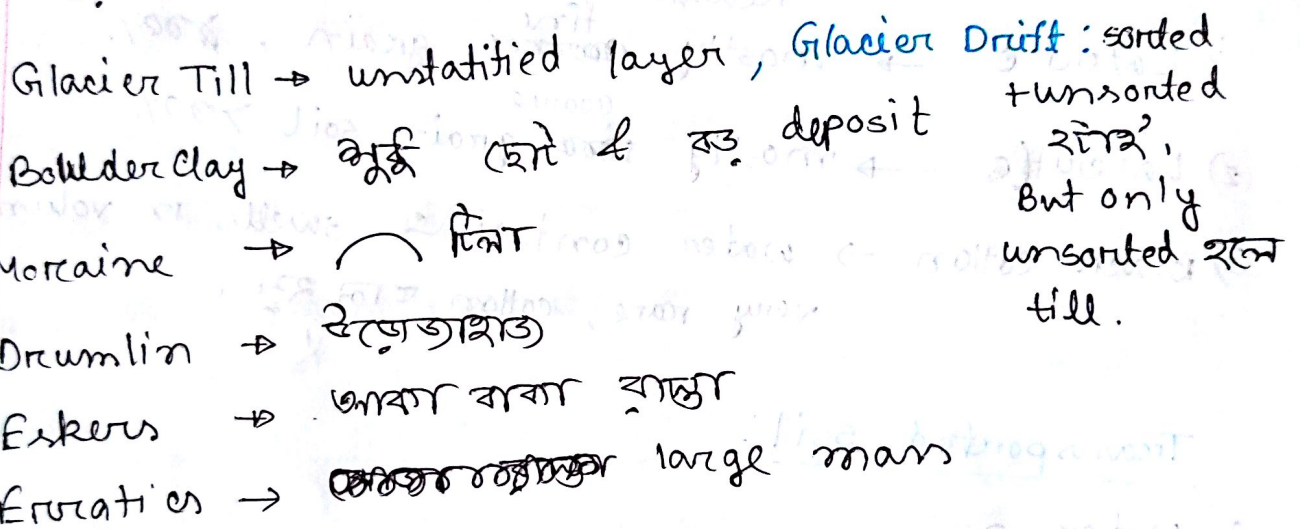 Glacier Till → unstatified layer, Glacier Drift : sorded
+unsorted
হটাই,
But only
unsorted হলে
till.
Boulder Clay → ছোট & বড় deposit
Morcaine → টিলা
Drumlin → উড়োজাহাজ
Eskers → আকা বাকা রাস্তা
Erratics → large mass